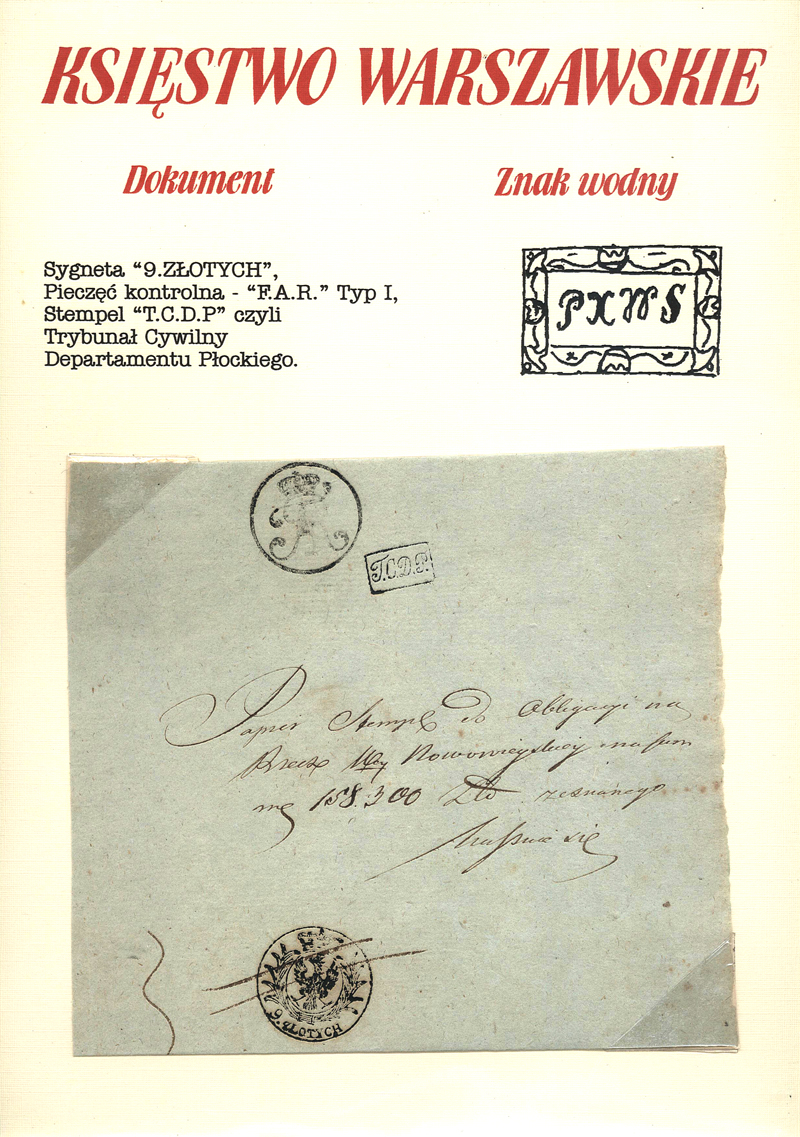 KSIĘSTWO WARSZAWSKIE
Dokument
Znak wodny
Sygneta “9.ZŁOTYCH”,
Pieczęć kontrolna - “F.A.R.” Typ I,
Stempel “T.C.D.P” czyli
Trybunał Cywilny
Departamentu Płockiego.
PXWS
T.C.D.P.
Papier Stempl do Obligacyi na
Rzecz Nowowieyskiey na sum
mę 158.300 Zło zeznanego
się
9.ZŁOTYCH